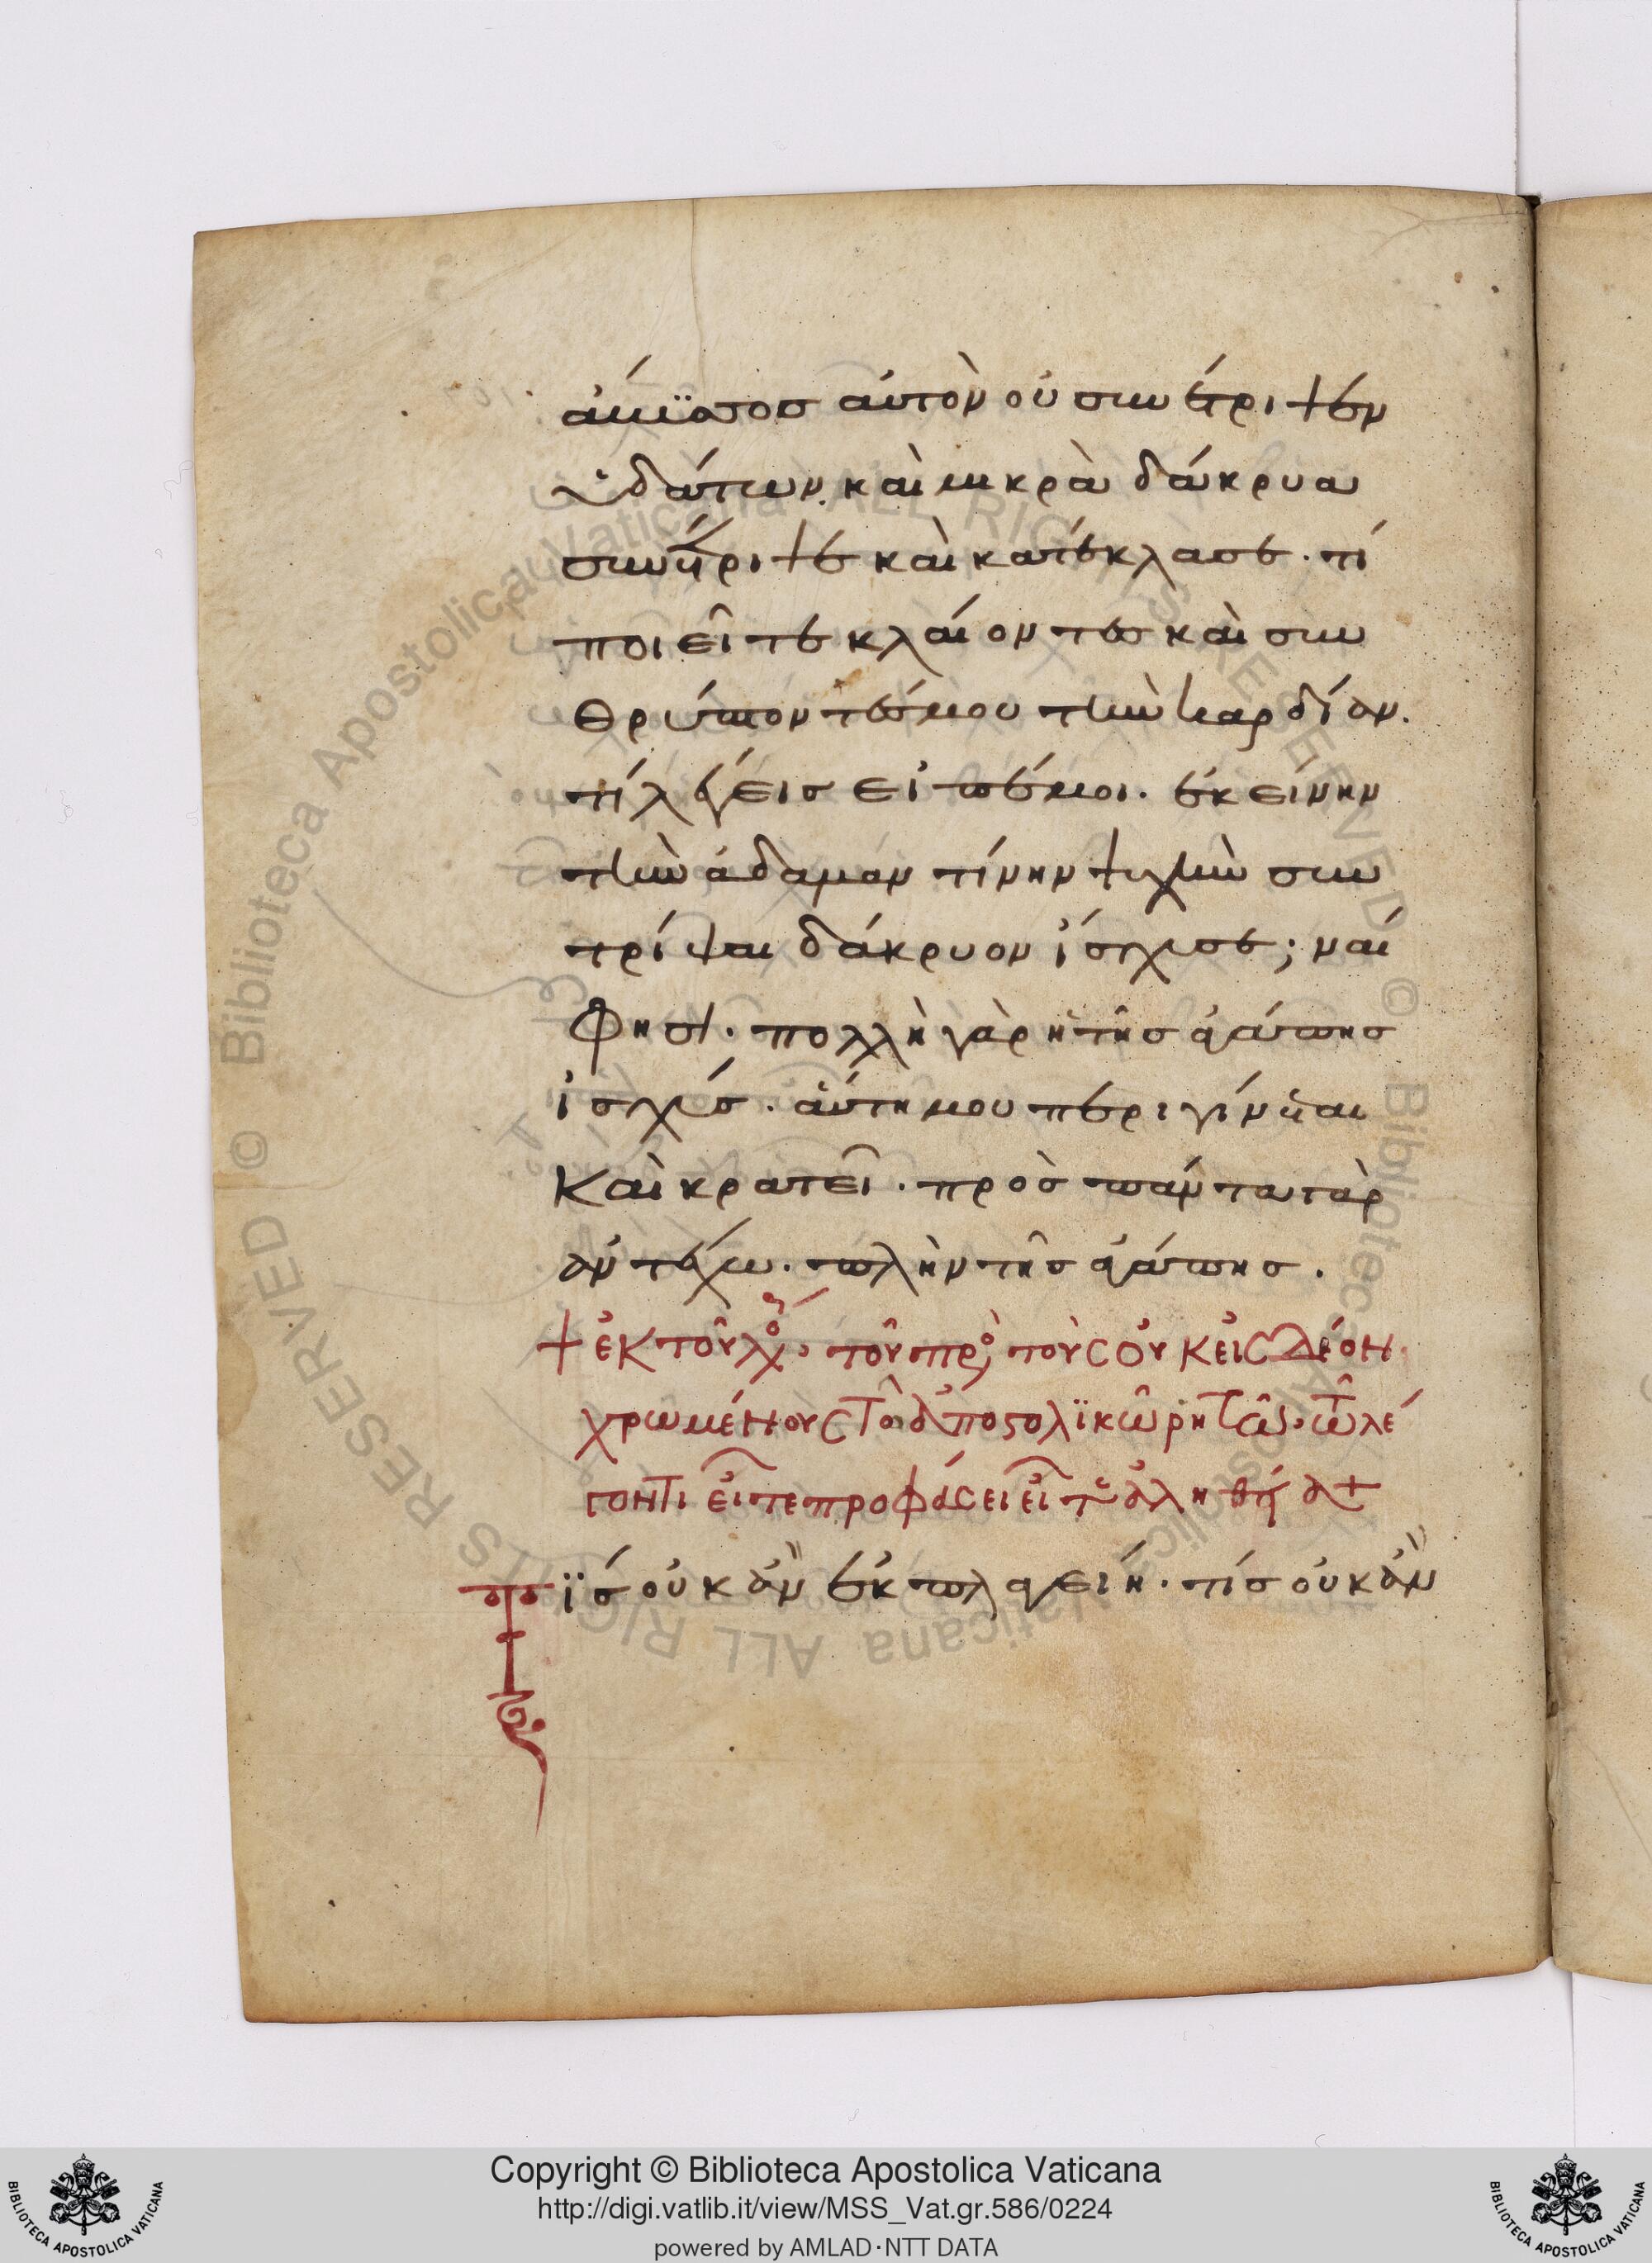 ἄμετρος αὐτὸν οὐ συνέτριψεν
ὑδάτων. καὶ μικρὰ δάκρυα
συνέτριψε καὶ κατέκλασε. τί
ποιεῖτε κλαίοντες καὶ συν
θρύπτοντές μου τὴν καρδίαν.
τί λέγεις εἰπέ μοι. ἐκείνην
τὴν ἀδαμαντίνην ψυχὴν συν
τρίψαι δάκρυον ἴσχυσε; ναί
φησι. πολλὴ γὰρ ἡ τῆς ἀγάπης
ἰσχύς. αὕτη μου περιγίνεται
καὶ κρατεῖ. πρὸς πάντα γὰρ
ἀντέχω. πλὴν τῆς ἀγάπης.
+ ἐκ τοῦ λό. τοῦ πρὸ τοὺς οὐκ εἰς δέον
χρωμένους τὸ ἀποστολϊκῶ ρητῶ. τῶ λέ
γοντι εἴτε προφάσει εἴτε ἀληθεία +
Τΐς οὐκ ἂν ἐκπλαγείη. τίς οὐκ ἂν
Copyright © Biblioteca Apostolica Vaticana
http://digi.vatlib.it/view/MSS_Vat.gr.586/0224
powered by AMLAD·NTT DATA
BIBLIOTECA APOSTOLICA VATICANA
BIBLIOTECA APOSTOLICA VATICANA